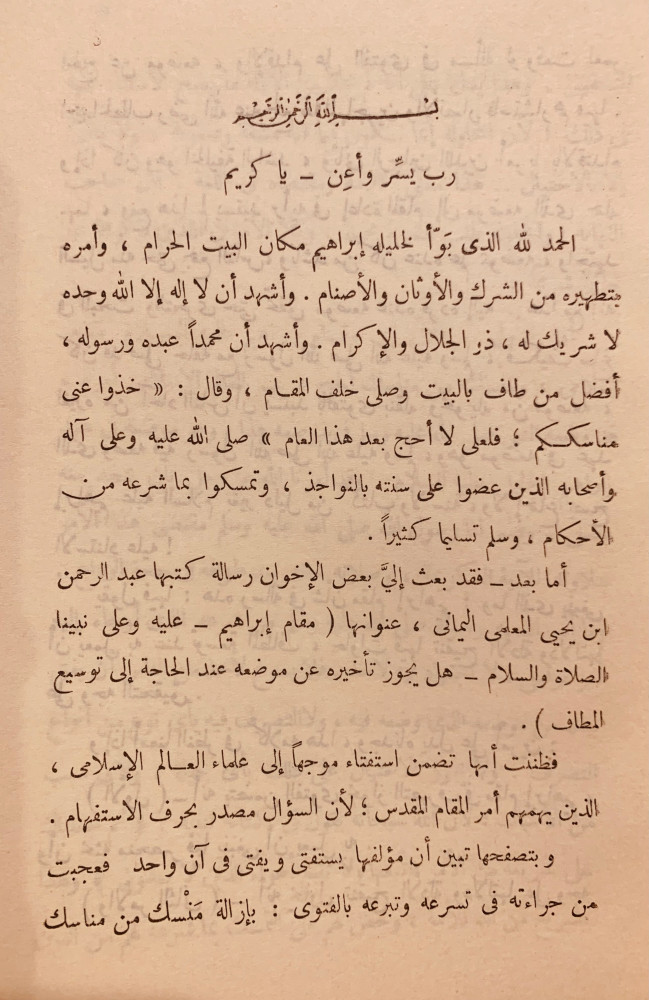 بسم الله الرحمن الرحيم
رب يسِّر وأعِن – يا كريم
الحمد لله الذى بَوّأ لخليله إبراهيم مكان البيت الحرام ، وأمره
بتطهيره من الشرك والأوثان والأصنام . وأشهد أن لا إله إلا الله وحده
لا شريك له ، ذو الجلال والإكرام . وأشهد أن محمداً عبده ورسوله ،
أفضل من طاف بالبيت وصلى خلف المقام ، وقال : « خذوا عنى
مناسككم ؛ فلعلى لا أحج بعد هذا العام » صلى الله عليه وعلى آله
وأصحابه الذين عضوا على سنته بالنواجذ ، وتمسكوا بما شرعه من
الأحكام ، وسلم تسليما كثيراً .
أما بعد – فقد بعث إليَّ بعض الإخوان رسالة كتبها عبد الرحمن
ابن يحيى المعلمى اليمانى ، عنوانها ( مقام إبراهيم – عليه وعلى نبينا
الصلاة والسلام – هل يجوز تأخيره عن موضعه عند الحاجة إلى توسيع
المطاف ) .
فظننت أنها تضمن استفتاء موجهاً إلى علماء العالم الإسلامى ،
الذين يهمهم أمر المقام المقدس ؛ لأن السؤال مصدر بحرف الاستفهام .
وبتصفحها تبين أن مؤلفها يستفتى ويفتى فى آن واحد فعجبت
من جراءته فى تسرعه وتبرعه بالفتوى : بإزالة مَنْسك من مناسك